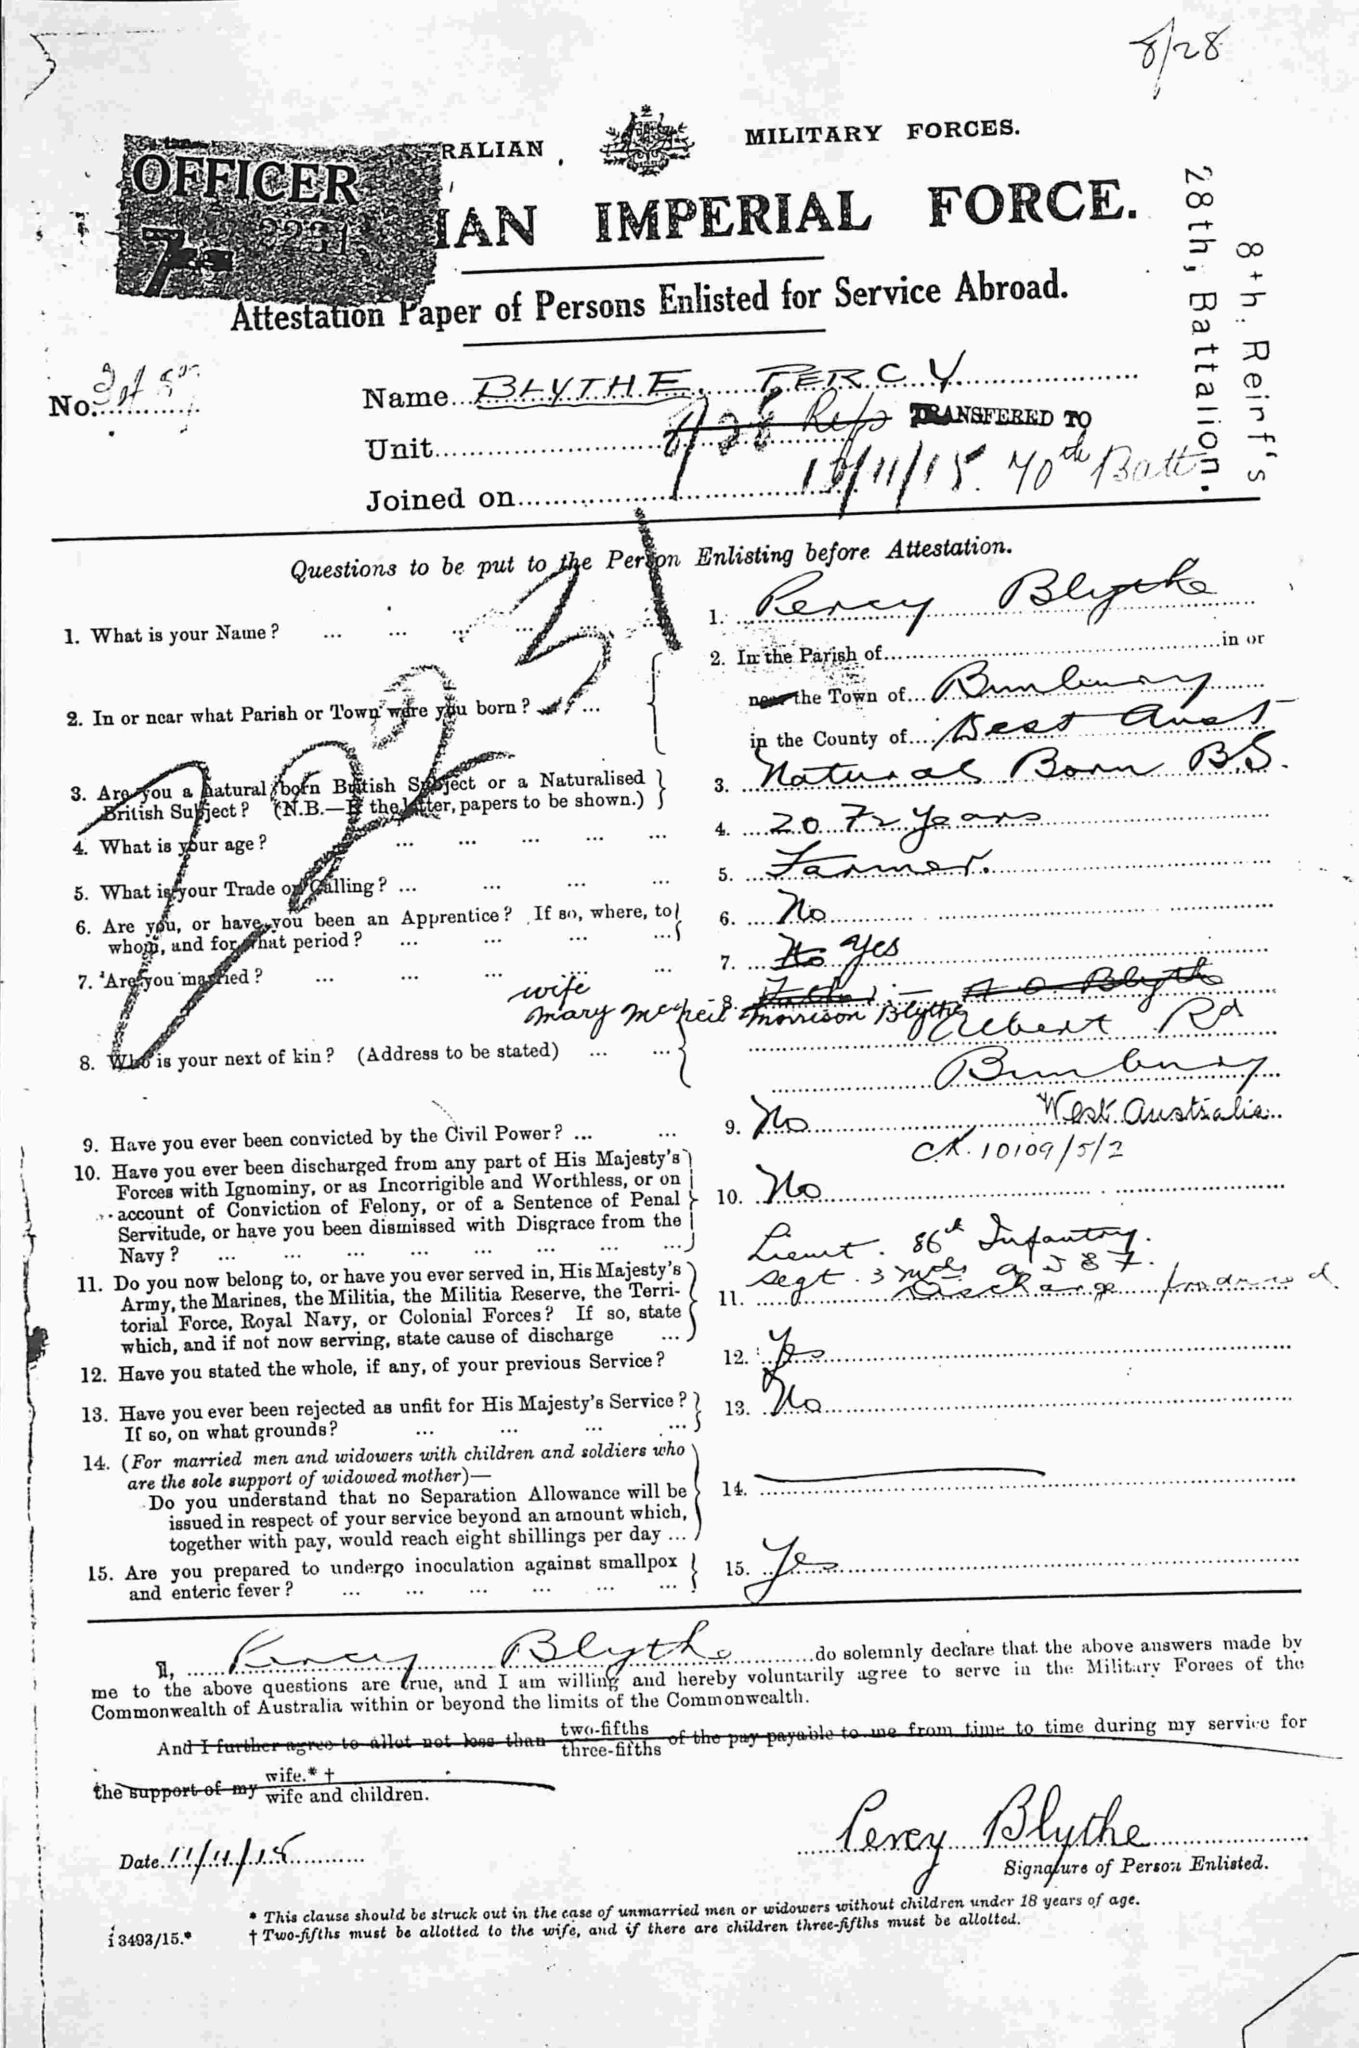 8/28
RALIAN MILITARY FORCES.
OFFICER
IAN IMPERIAL FORCE.
Attestation Paper of Persons Enlisted for Service Abroad.
28th, Battalion.
8th. Reinf's
No.
Name BLYTHE. PERCY
Unit 8/28 Refs TRANSFERED TO
Joined on 16/11/15. 70th Batt
Questions to be put to the Person Enlisting before Attestation.
7231
1. What is your Name? ... ... ... ... ... 1. Percy Blythe
2. In or near what Parish or Town were you born? ... 2. In the Parish of in or
near the Town of Bunbury
in the County of West Aust
3. Are you a natural born British Subject or a Naturalised British Subject? (N.B.—If the latter, papers to be shown.) 3. Natural Born B.S.
4. What is your age? ... ... ... ... ... 4. 20 7/12 years
5. What is your Trade or Calling? ... ... ... ... 5. Farmer.
6. Are you, or have you been an Apprentice? If so, where, to
whom, and for what period? ... ... ... ... 6. No
7. Are you married? ... ... ... ... ... 7. No Yes
wife
Mary McNeil Morrison Blythe
8. Who is your next of kin? (Address to be stated) ... ... 8. Father :— A. O. Blythe
Albert Rd
Bunbury
West Australia
9. Have you ever been convicted by the Civil Power? ... ... 9. No
C.R. 10109/5/2
10. Have you ever been discharged from any part of His Majesty's
Forces with Ignominy, or as Incorrigible and Worthless, or on
account of Conviction of Felony, or of a Sentence of Penal
Servitude, or have you been dismissed with Disgrace from the
Navy? ... ... ... ... ... ... ... ... 10. No
11. Do you now belong to, or have you ever served in, His Majesty's
Army, the Marines, the Militia, the Militia Reserve, the Terri-
torial Force, Royal Navy, or Colonial Forces? If so, state
which, and if not now serving, state cause of discharge ... 11. Lieut. 86th Infantry.
Segt. 3 mths A I F.
Discharge produced
12. Have you stated the whole, if any, of your previous Service? 12. Yes
13. Have you ever been rejected as unfit for His Majesty's Service?
If so, on what grounds? ... ... ... ... 13. No
14. (For married men and widowers with children and soldiers who
are the sole support of widowed mother)—
Do you understand that no Separation Allowance will be
issued in respect of your service beyond an amount which,
together with pay, would reach eight shillings per day ... 14.
15. Are you prepared to undergo inoculation against smallpox
and enteric fever? ... ... ... ... ... ... 15. Yes
I, Percy Blythe do solemnly declare that the above answers made by
me to the above questions are true, and I am willing and hereby voluntarily agree to serve in the Military Forces of the
Commonwealth of Australia within or beyond the limits of the Commonwealth.
And I further agree to allot not less than two-fifths three-fifths of the pay payable to me from time to time during my service for
the support of my wife.* † wife and children.
Percy Blythe
Date 11/11/15
Signature of Person Enlisted.
* This clause should be struck out in the case of unmarried men or widowers without children under 18 years of age.
i 3493/15.* † Two-fifths must be allotted to the wife, and if there are children three-fifths must be allotted.